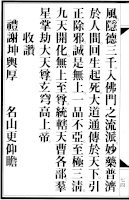 風隱德三千入佛門之流派妙藥普濟
於人間回生起死大道通傳於天下引
正除邪誠是無上一品不亞至極三清
九天開化無上至尊統轄天曹各部羣
星掌劫大天尊玄穹高上帝
收讚
禮謝坤輿厚　名山更仰瞻